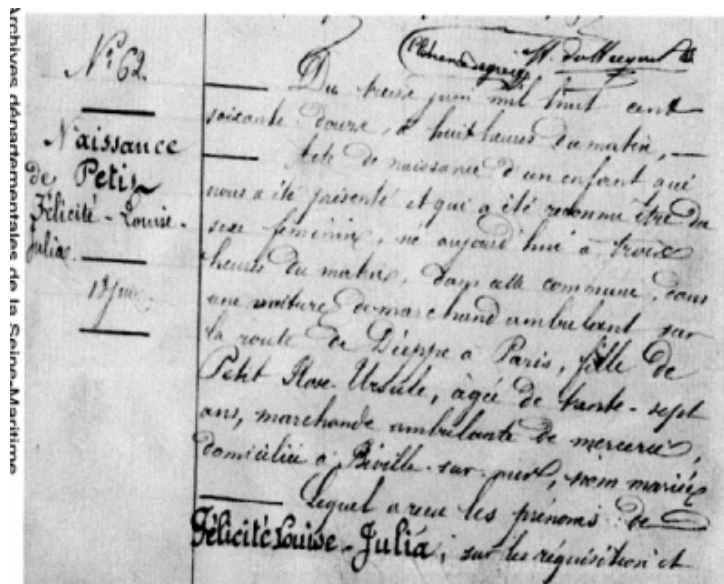 Archives départementales de la Seine-Maritime
N° 62
Naissance
de Petit
Félicité-Louise-
Julia
13 juin
Du treize juin mil huit cent
soixante-douze, à huit heures du matin,
Acte de naissance d'un enfant qui
nous a été présenté et qui a été reconnu être du
sexe féminin, né aujourd'hui à trois
heures du matin, dans cette commune, dans
une voiture de marchand ambulant sur
la route de Dieppe à Paris, fille de
Petit Rose-Ursule, âgée de trente-sept
ans, marchande ambulante de mercerie,
domiciliée à Biville-sur-mer, non mariée
Lequel a reçu les prénoms de
Félicité Louise-Julia; sur les réquisition et